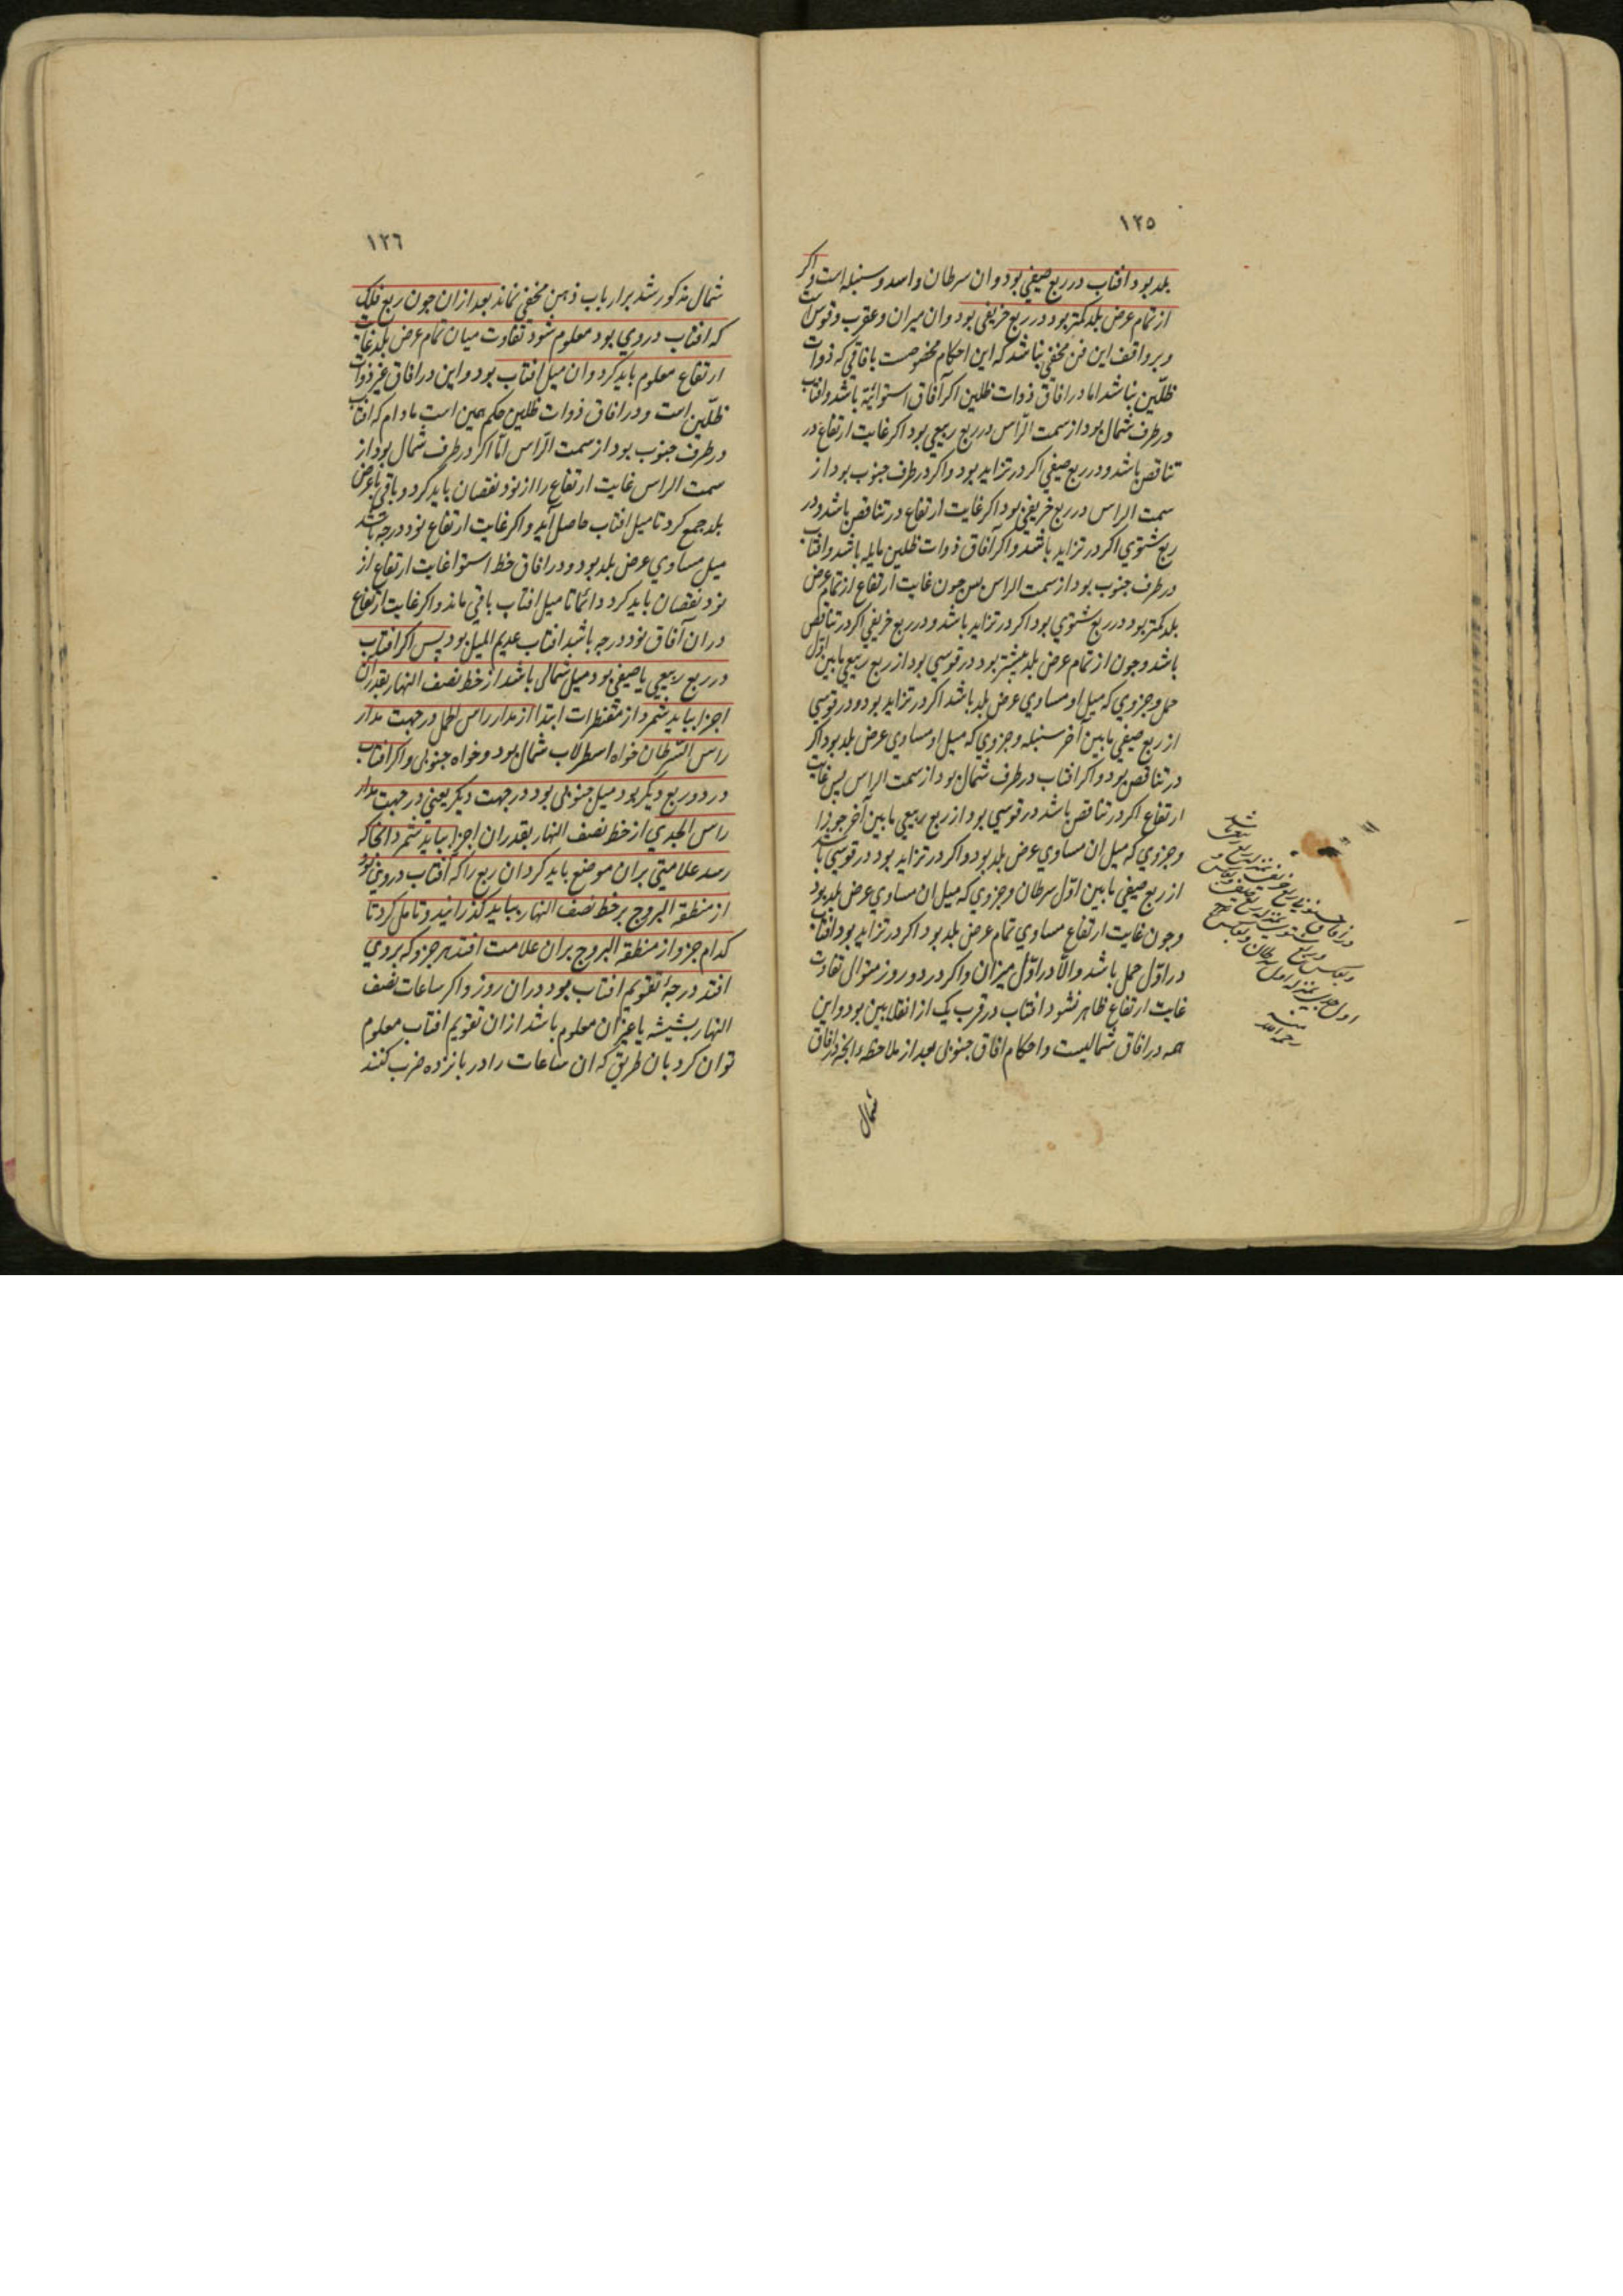 ١٢٥
بلد بود افتاب در ربع صیفی بود و ان سرطان و اسد و سنبله است و اکر
از تمام عرض بلد کمتر بود در ربع خریفی بود و ان میزان و عقرب و قوس است
و بر واقف این فن مخفی نباشد که این احکام مخصوصست بافاقی که ذوات
ظلّین نباشد اما در افاق ذوات ظلین اکر آفاق استوائیة باشد و افتاب
در طرف شمال بود از سمت الرّاس در ربع ربیعی بود اکر غایت ارتفاع در
تناقص باشد و در ربع صیفی اکر در تزاید بود و اکر در طرف جنوب بود از
سمت الراس در ربع خریفی بود اکر غایت ارتفاع در تناقص باشد و در
ربع شتوی اکر در تزاید باشد و اکر افاق ذوات ظلین مایله باشد و افتاب
در طرف جنوب بود از سمت الراس پس چون غایت ارتفاع از تمام عرض
بلد کمتر بود در ربع شتوی بود اکر در تزاید باشد و در ربع خریفی اکر در تناقص
باشد و چون از تمام عرض بلد بیشتر بود در قوسی بود از ربع ربیعی مابین اوّل
حمل و جزوی که میل او مساوی عرض بلد باشد اکر در تزاید بود و در قوسی
از ربع صیفی مابین آخر سنبله و جزوی که میل او مساوی عرض بلد بود اکر
در تناقص بود و اکر افتاب در طرف شمال بود از سمت الراس پس غایت
ارتفاع اکر در تناقص باشد در قوسی بود از ربع ربیعی مابین آخر جوزا
و جزوی که میل ان مساوی عرض بلد بود و اکر در تزاید بود در قوسی باشد
از ربع صیفی مابین اوّل سرطان و جزوی که میل ان مساوی عرض بلد بود
و چون غایت ارتفاع مساوی تمام عرض بلد بود اکر در تزاید بود افتاب
در اوّل حمل باشد و الّا در اوّل میزان و اکر در دو روز متوال تفاوت
غایت ارتفاع ظاهر نشود افتاب در قرب یک از انقلابین بود و این
همه در افاق شمالیست و احکام افاق جنوبی بعد از ملاحظه دانچه در افاق
شمال
در افاق جنوبی ربع خریفی بمنزله ربع ربیعی باشد
و بعکس و ربع شتوی بمنزله ربع صیفی و بعکس و
اول جدی بمنزله اول سرطان و بعکس
منه
رحمه الله
١٢٦
شمال مذکور شد بر ارباب ذهن مخفی نماند بعد از ان چون ربع فلک
که افتاب در وی بود معلوم شود تفاوت میان تمام عرض بلد و غایت
ارتفاع معلوم باید کرد و ان میل افتاب بود و این در افاق غیر ذوات
ظلّین است و در افاق ذوات ظلین حکم همین است مادام که افتاب
در طرف جنوب بود از سمت الرّاس امّا اکر در طرف شمال بود از
سمت الراس غایت ارتفاع را از نود نقصان باید کرد و باقی با عرض
بلد جمع کرد تا میل افتاب حاصل آید و اکر غایت ارتفاع نود درجه باشد
میل مساوی عرض بلد بود و در افاق خط استوا غایت ارتفاع از
نود نقصان باید کرد دائما تا میل افتاب باقی ماند و اکر غایت ارتفاع
در ان آفاق نود درجه باشد افتاب عدیم المیل بود پس اکر افتاب
در ربع ربیعی یا صیفی بود میل شمالی باشد از خط نصف النهار بقدر ان
اجزا بباید شمرد از مقنطرات ابتدا از مدار راس الحمل در جهت مدار
راس السّرطان خواه اسطرلاب شمال بود و خواه جنوبی و اکر افتاب
در دو ربع دیکر بود میل جنوبی بود در جهت دیکر یعنی در جهت مدار
راس الجدی از خط نصف النهار بقدر ان اجزا بباید شمرد انجا که
رسد علامتی بران موضع باید کرد ان ربع را که افتاب در وی بود
از منطقه البروج بر خط نصف النهار بباید کذرانید و تامل کرد تا
کدام جزو از منطقه البروج بران علامت افتد هر جزو که بروی
افتد درجهٔ تقویم افتاب بود دران روز و اکر ساعات نصف
النهار بشیشه یا غیر ان معلوم باشد از ان تقویم افتاب معلوم
توان کرد بان طریق که ان ساعات را در پانزده ضرب کنند